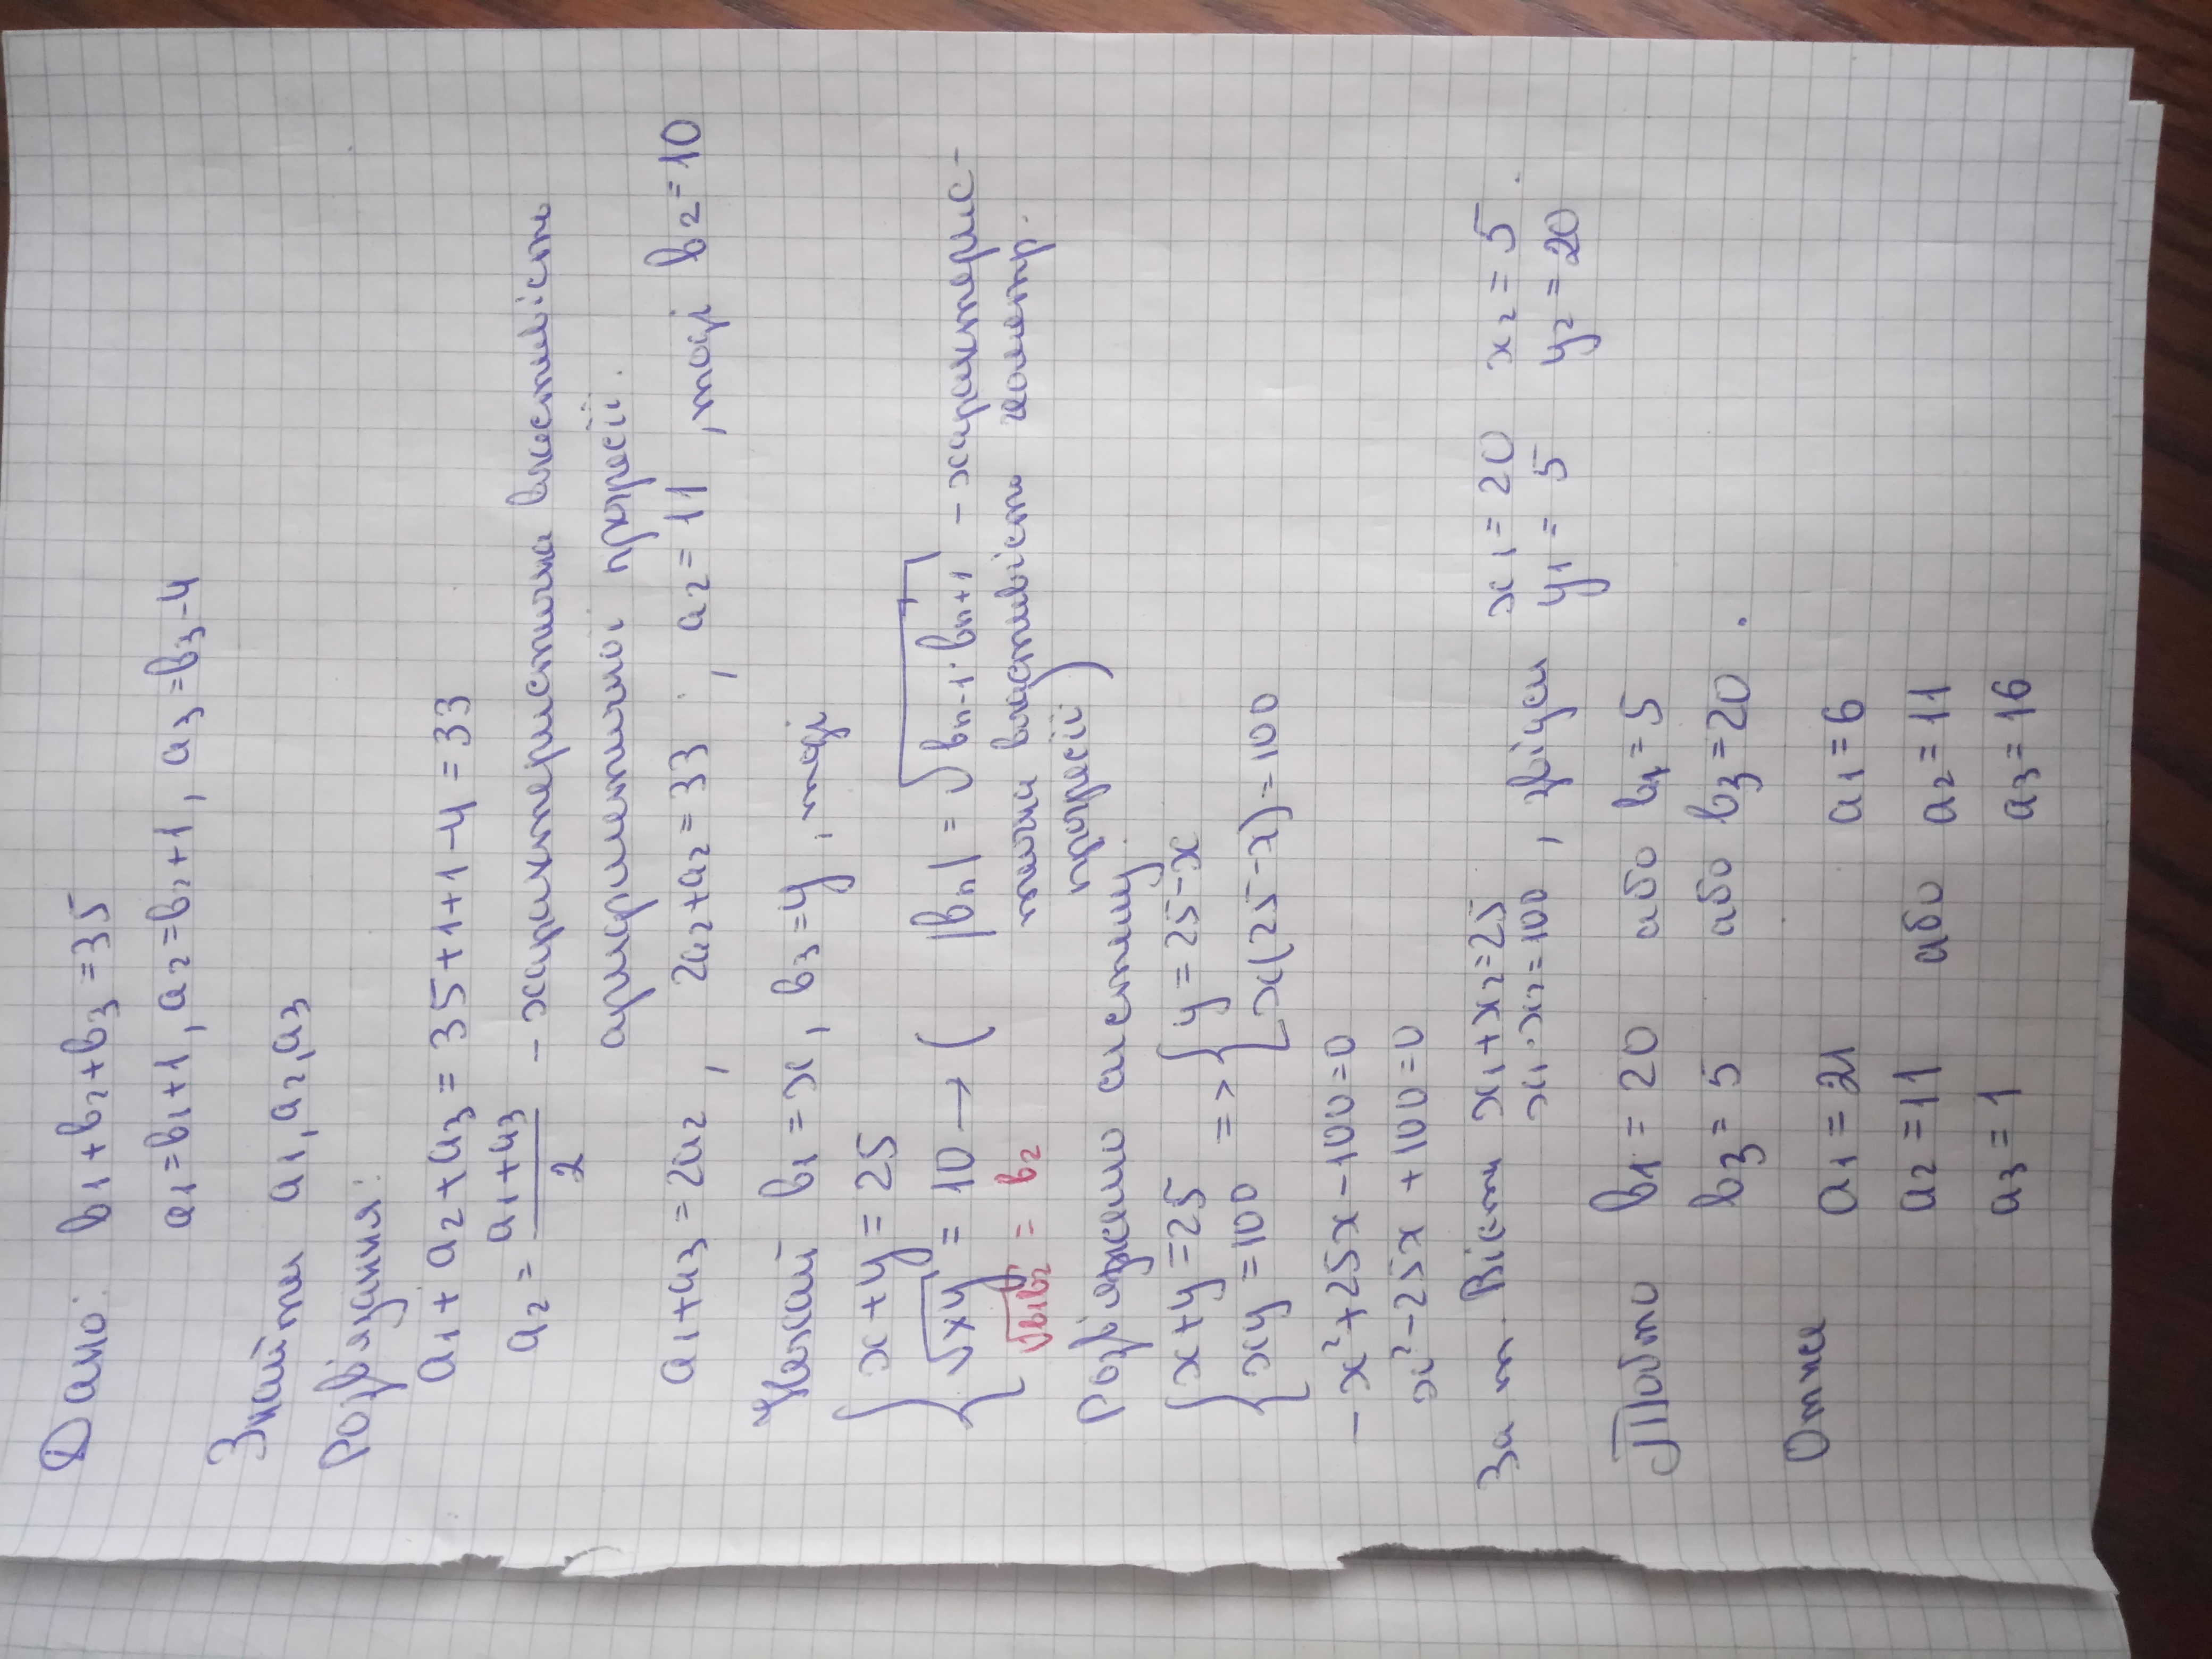 Дано: b₁+b₂+b₃=35
a₁=b₁+1, a₂=b₂+1, a₃=b₃-4
Знайти a₁, a₂, a₃
Розв'язання:
a₁+a₂+a₃=35+1+1-4=33
a₂=(a₁+a₃)/2 - характеристична властивість
арифметичної прогресії.
a₁+a₃=2a₂, 2a₂+a₂=33, a₂=11, тоді b₂=10
Нехай b₁=x, b₃=y, тоді
{x+y=25
√xy=10→( |bₙ|=√bₙ₋₁·bₙ₊₁ - характерис-
√b₁b₂=b₂ тична властивість геометр.
прогресії)
Розв'яжемо систему
{x+y=25 => {y=25-x
xy=100 x(25-x)=100
-x²+25x-100=0
x²-25x+100=0
За т. Вієта x₁+x₂=25 x₁=20 x₂=5.
x₁·x₂=100, звідси y₁=5 y₂=20
Тобто b₁=20 або b₁=5
b₃=5 або b₃=20.
Отже a₁=21 a₁=6
a₂=11 або a₂=11
a₃=1 a₃=16